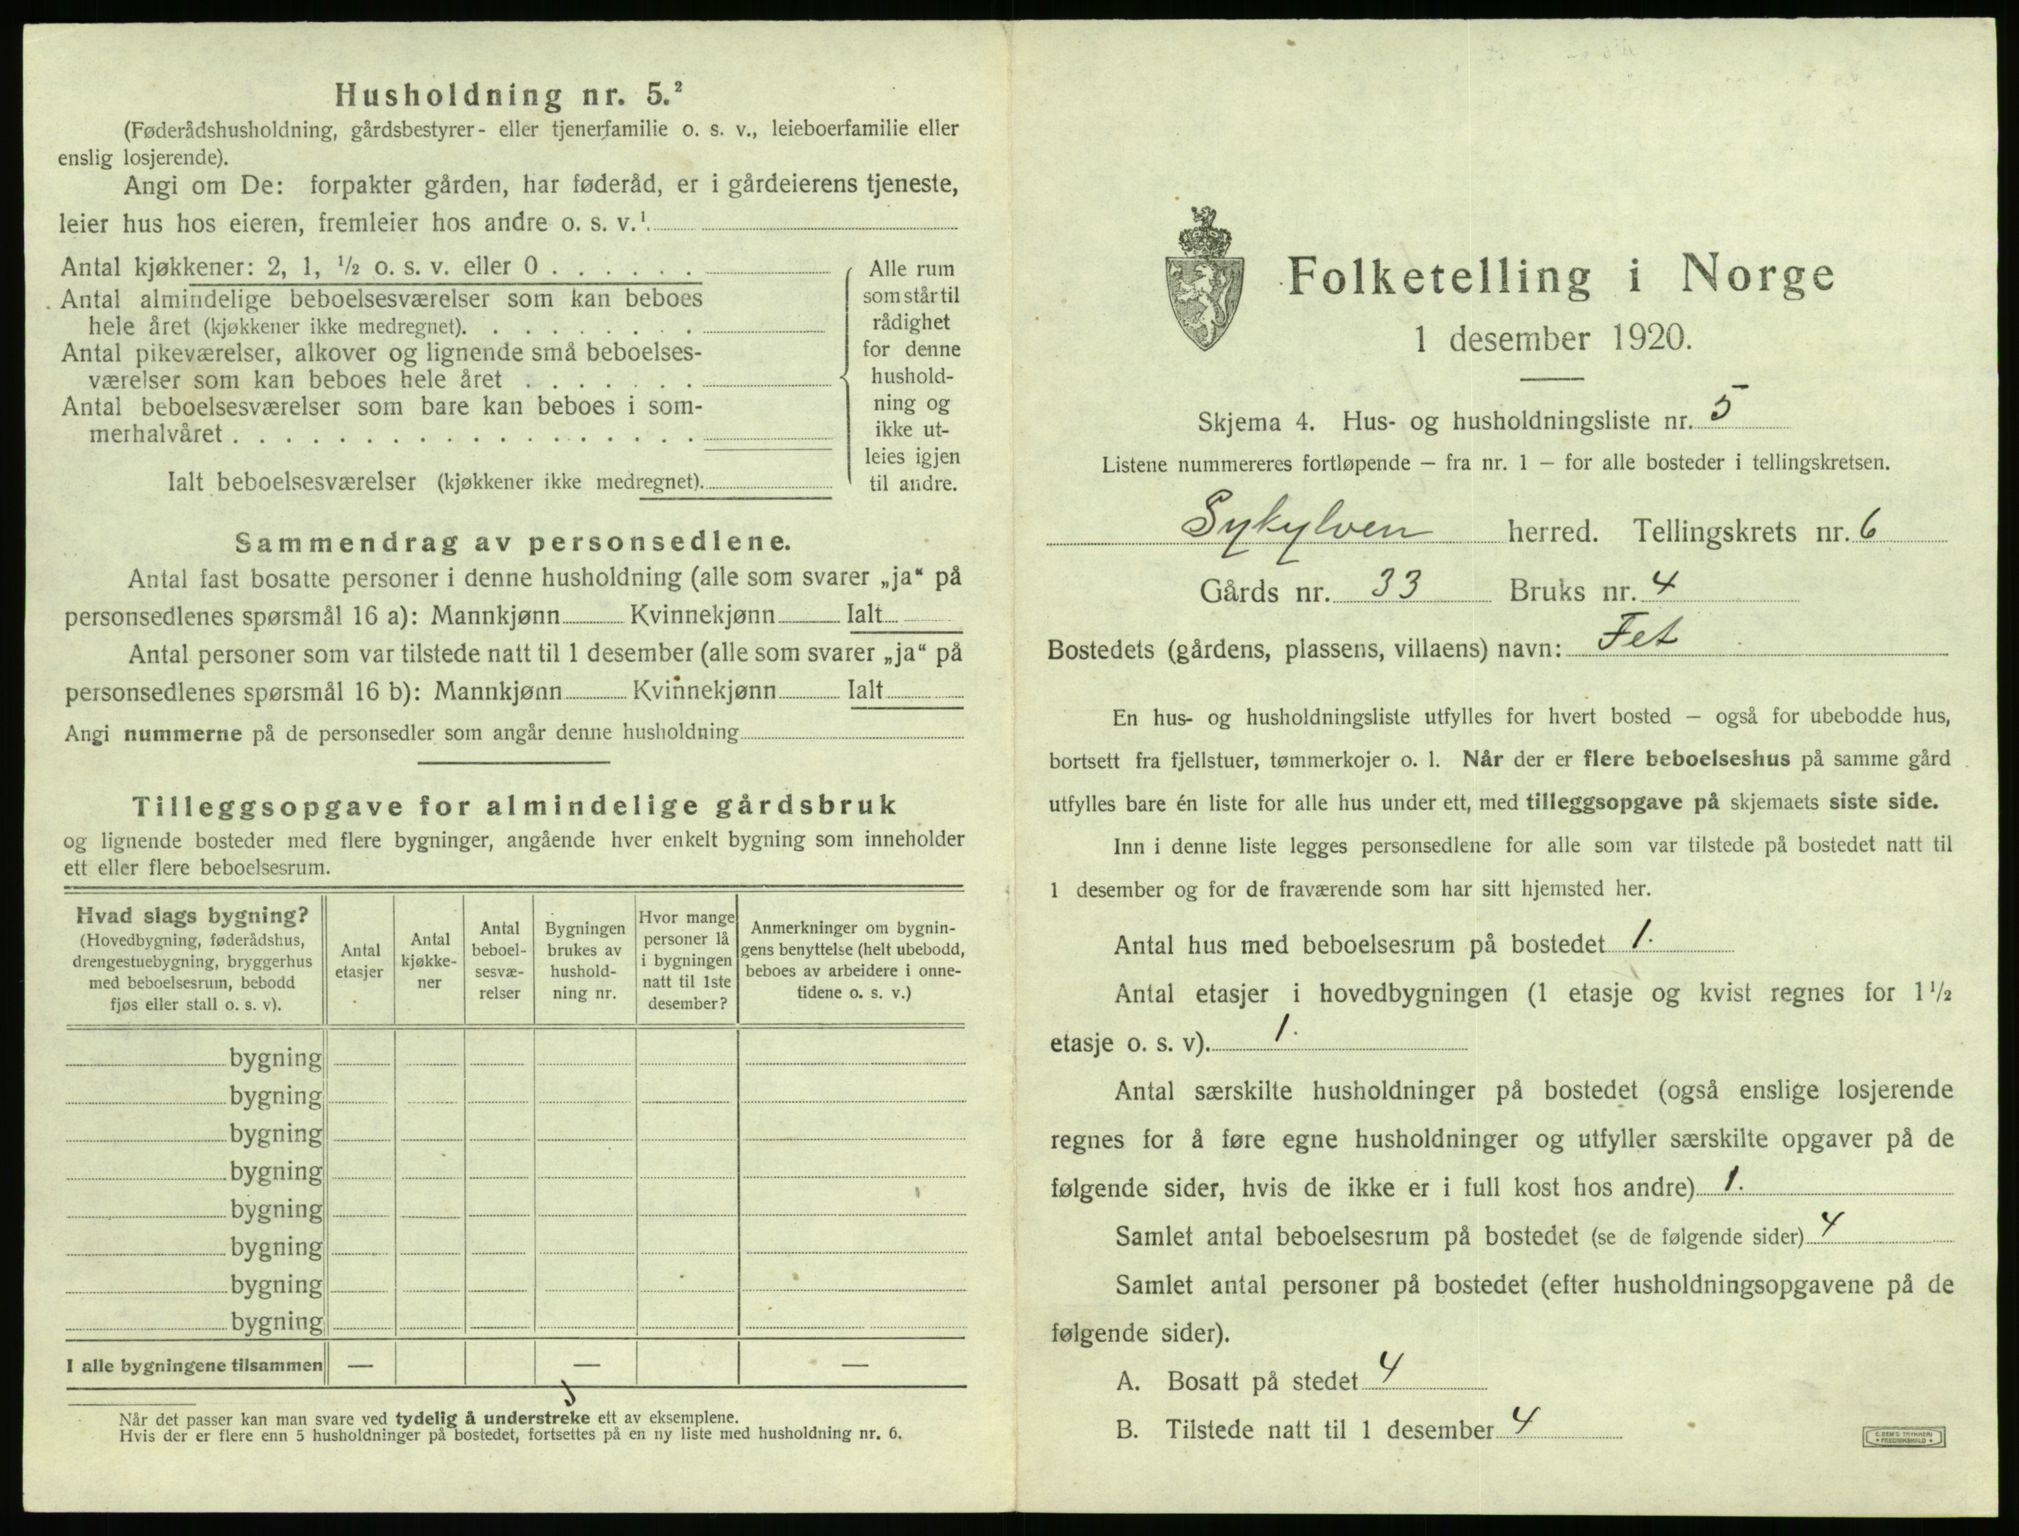 Husholdning nr. 5.²
(Føderådshusholdning, gårdsbestyrer- eller tjenerfamilie o. s. v., leieboerfamilie eller
enslig losjerende).
Angi om De: forpakter gården, har føderåd, er i gårdeierens tjeneste,
leier hus hos eieren, fremleier hos andre o. s. v.¹
Antal kjøkkener: 2, 1, ½ o. s. v. eller 0 . . . . . .
Antal almindelige beboelsesværelser som kan beboes
hele året (kjøkkener ikke medregnet). . . . . . . . .
Antal pikeværelser, alkover og lignende små beboelses-
værelser som kan beboes hele året . . . . . . .
Antal beboelsesværelser som bare kan beboes i som-
merhalvåret . . . . . . . . . . . . . . . . . .
Ialt beboelsesværelser (kjøkkener ikke medregnet).
Alle rum
som står til
rådighet
for denne
hushold-
ning og
ikke ut-
leies igjen
til andre.
Sammendrag av personsedlene.
Antal fast bosatte personer i denne husholdning (alle som svarer „ja“ på
personsedlenes spørsmål 16 a): Mannkjønn Kvinnekjønn Ialt
Antal personer som var tilstede natt til 1 desember (alle som svarer „ja“ på
personsedlenes spørsmål 16 b): Mannkjønn Kvinnekjønn Ialt
Angi nummerne på de personsedler som angår denne husholdning
Tilleggsopgave for almindelige gårdsbruk
og lignende bosteder med flere bygninger, angående hver enkelt bygning som inneholder
ett eller flere beboelsesrum.
Hvad slags bygning?
(Hovedbygning, føderådshus,
drengestuebygning, bryggerhus
med beboelsesrum, bebodd
fjøs eller stall o. s. v).
Antal
etasjer
Antal
kjøkke-
ner
Antal
beboel-
sesvæ-
relser
Bygningen
brukes av
hushold-
ning nr.
Hvor mange
personer lå
i bygningen
natt til 1ste
desember?
Anmerkninger om bygnin-
gens benyttelse (helt ubebodd,
beboes av arbeidere i onne-
tidene o. s. v.)
bygning
bygning
bygning
bygning
bygning
bygning
bygning
bygning
I alle bygningene tilsammen — — —
Når det passer kan man svare ved tydelig å understreke ett av eksemplene.
Hvis der er flere enn 5 husholdninger på bostedet, fortsettes på en ny liste med husholdning nr. 6.
Folketelling i Norge
1 desember 1920.
Skjema 4. Hus- og husholdningsliste nr. 5
Listene nummereres fortløpende – fra nr. 1 – for alle bosteder i tellingskretsen.
Sykylven herred. Tellingskrets nr. 6
Gårds nr. 33 Bruks nr. 4
Bostedets (gårdens, plassens, villaens) navn: Fet
En hus- og husholdningsliste utfylles for hvert bosted – også for ubebodde hus,
bortsett fra fjellstuer, tømmerkojer o. l. Når der er flere beboelseshus på samme gård
utfylles bare én liste for alle hus under ett, med tilleggsopgave på skjemaets siste side.
Inn i denne liste legges personsedlene for alle som var tilstede på bostedet natt til
1 desember og for de fraværende som har sitt hjemsted her.
Antal hus med beboelsesrum på bostedet 1.
Antal etasjer i hovedbygningen (1 etasje og kvist regnes for 1½
etasje o. s. v). 1.
Antal særskilte husholdninger på bostedet (også enslige losjerende
regnes for å føre egne husholdninger og utfyller særskilte opgaver på de
følgende sider, hvis de ikke er i full kost hos andre) 1.
Samlet antal beboelsesrum på bostedet (se de følgende sider) 4
Samlet antal personer på bostedet (efter husholdningsopgavene på de
følgende sider).
A. Bosatt på stedet 4
B. Tilstede natt til 1 desember 4